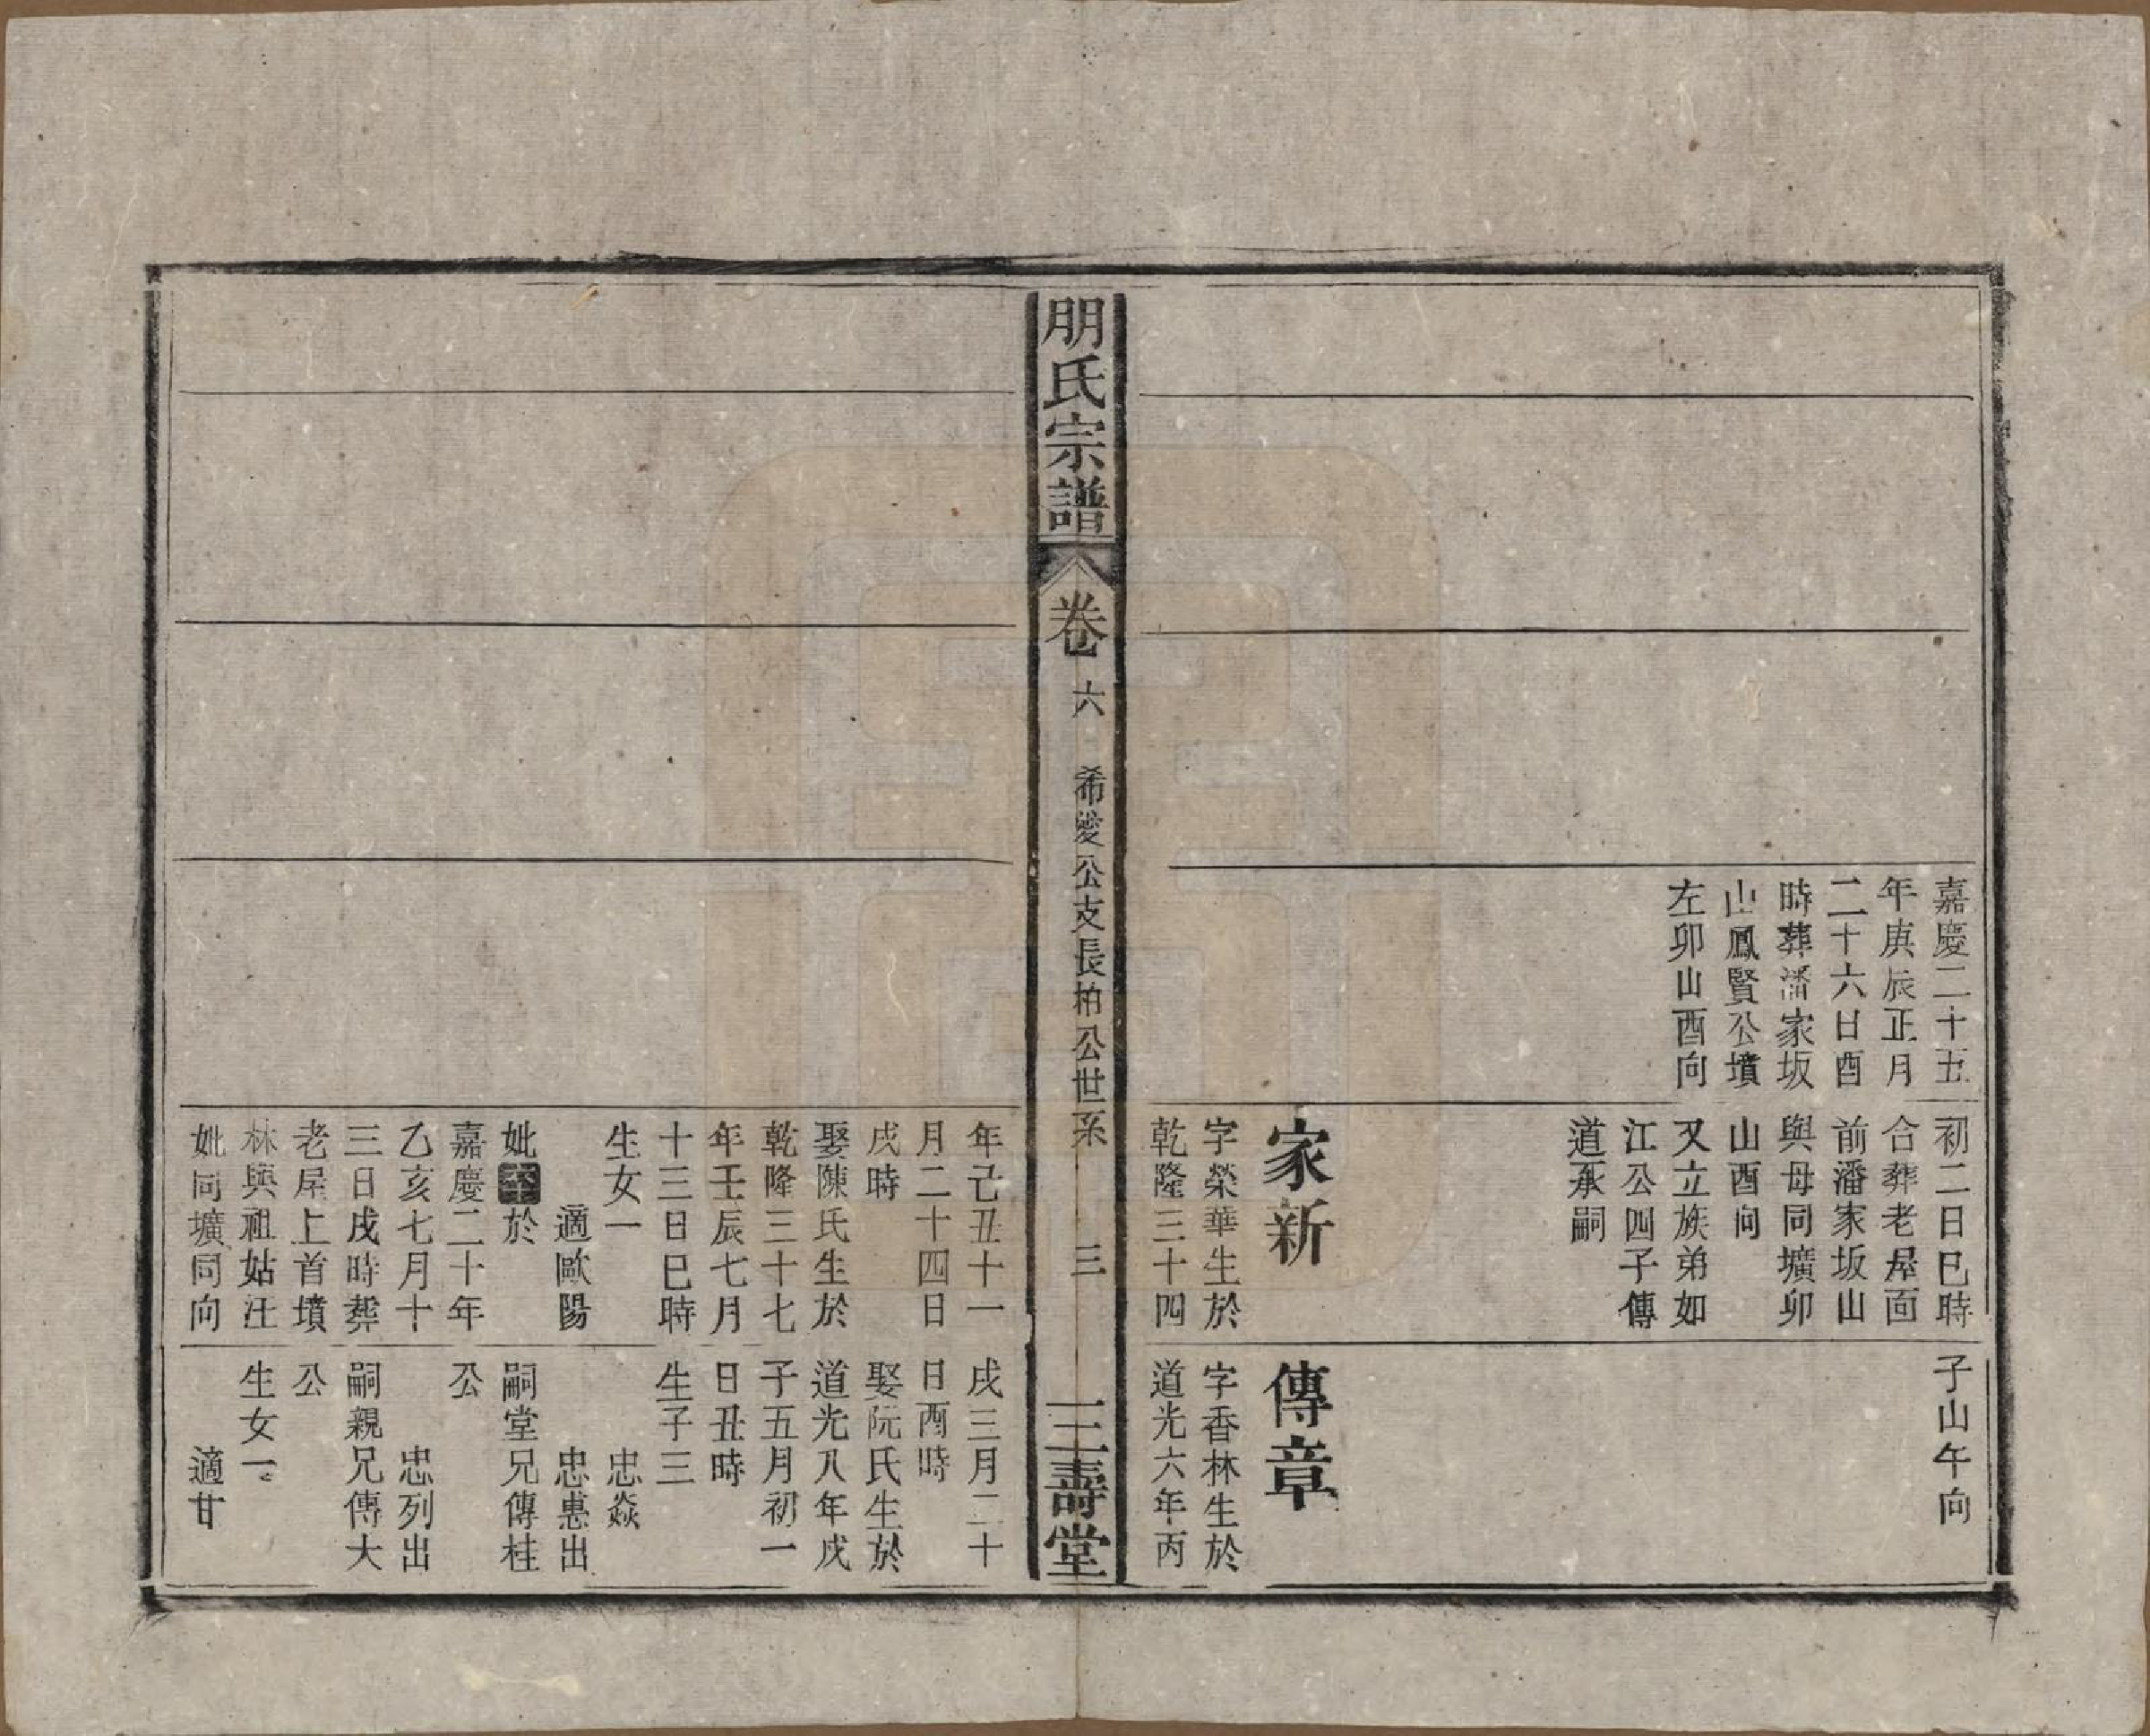 嘉慶二十五
年庚辰正月
二十六日酉
時葬潘家坂
山鳳賢公墳
左卯山酉向
初二日巳時
合葬老屋面
前潘家坂山
與母同壙卯
山酉向
又立族弟如
江公四子傳
道承嗣
家新
字榮華生於
乾隆三十四
子山午向
傳章
字香林生於
道光六年丙
朋氏宗譜
卷六
希愛公支長柏公世系
三
三壽堂
年己丑十一
月二十四日
戌時
娶陳氏生於
乾隆三十七
年壬辰七月
十三日巳時
生女一
適歐陽
妣於
嘉慶二十年
乙亥七月十
三日戌時葬
老屋上首墳
林與祖姑汪
妣同壙同向
戌三月二十
日酉時
娶阮氏生於
道光八年戊
子五月初一
日丑時
生子三
忠焱
忠惠出
嗣堂兄傳桂
公
忠列出
嗣親兄傳大
公
生女一
適甘